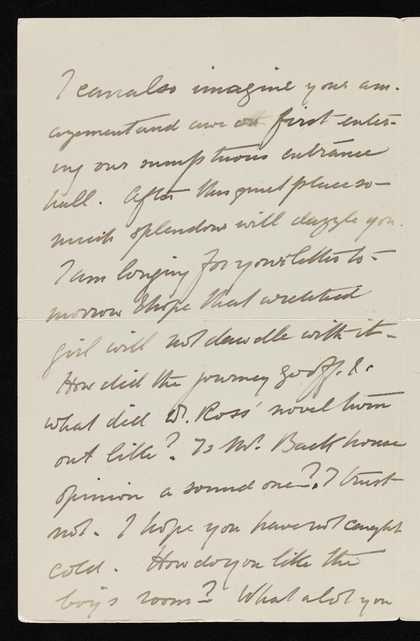 I can also imagine your am-
azement and awe on first enter-
ing our sumptuous entrance
hall. After this quiet place so
much splendour will dazzle you.
I am longing for your letter to-
morrow & hope that wretched
girl will not dawdle with it -
How did the journey go off. &
what did W. Ross' novel turn
out like? Is Mr. Backhouse
opinion a sound one? I trust
not. I hope you have not caught
cold. How do you like the
boy's room? What a lot you